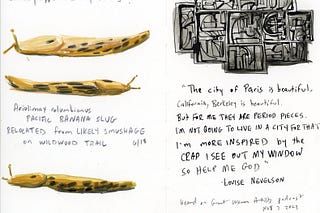 Ariolimax columbianus
PACIFIC BANANA SLUG
RELOCATED from LIKELY SMUSHAGE
on WILDWOOD TRAIL 6/18
"The city of Paris is beautiful.
California, Berkeley is beautiful.
But for me they are period pieces.
I'm not going to live in a city for that
I'm more inspired by the
CRAP I SEE OUT MY WINDOW
SO HELP ME GOD"
-LOUISE NEVELSON
Heard on Great Women Artists podcast